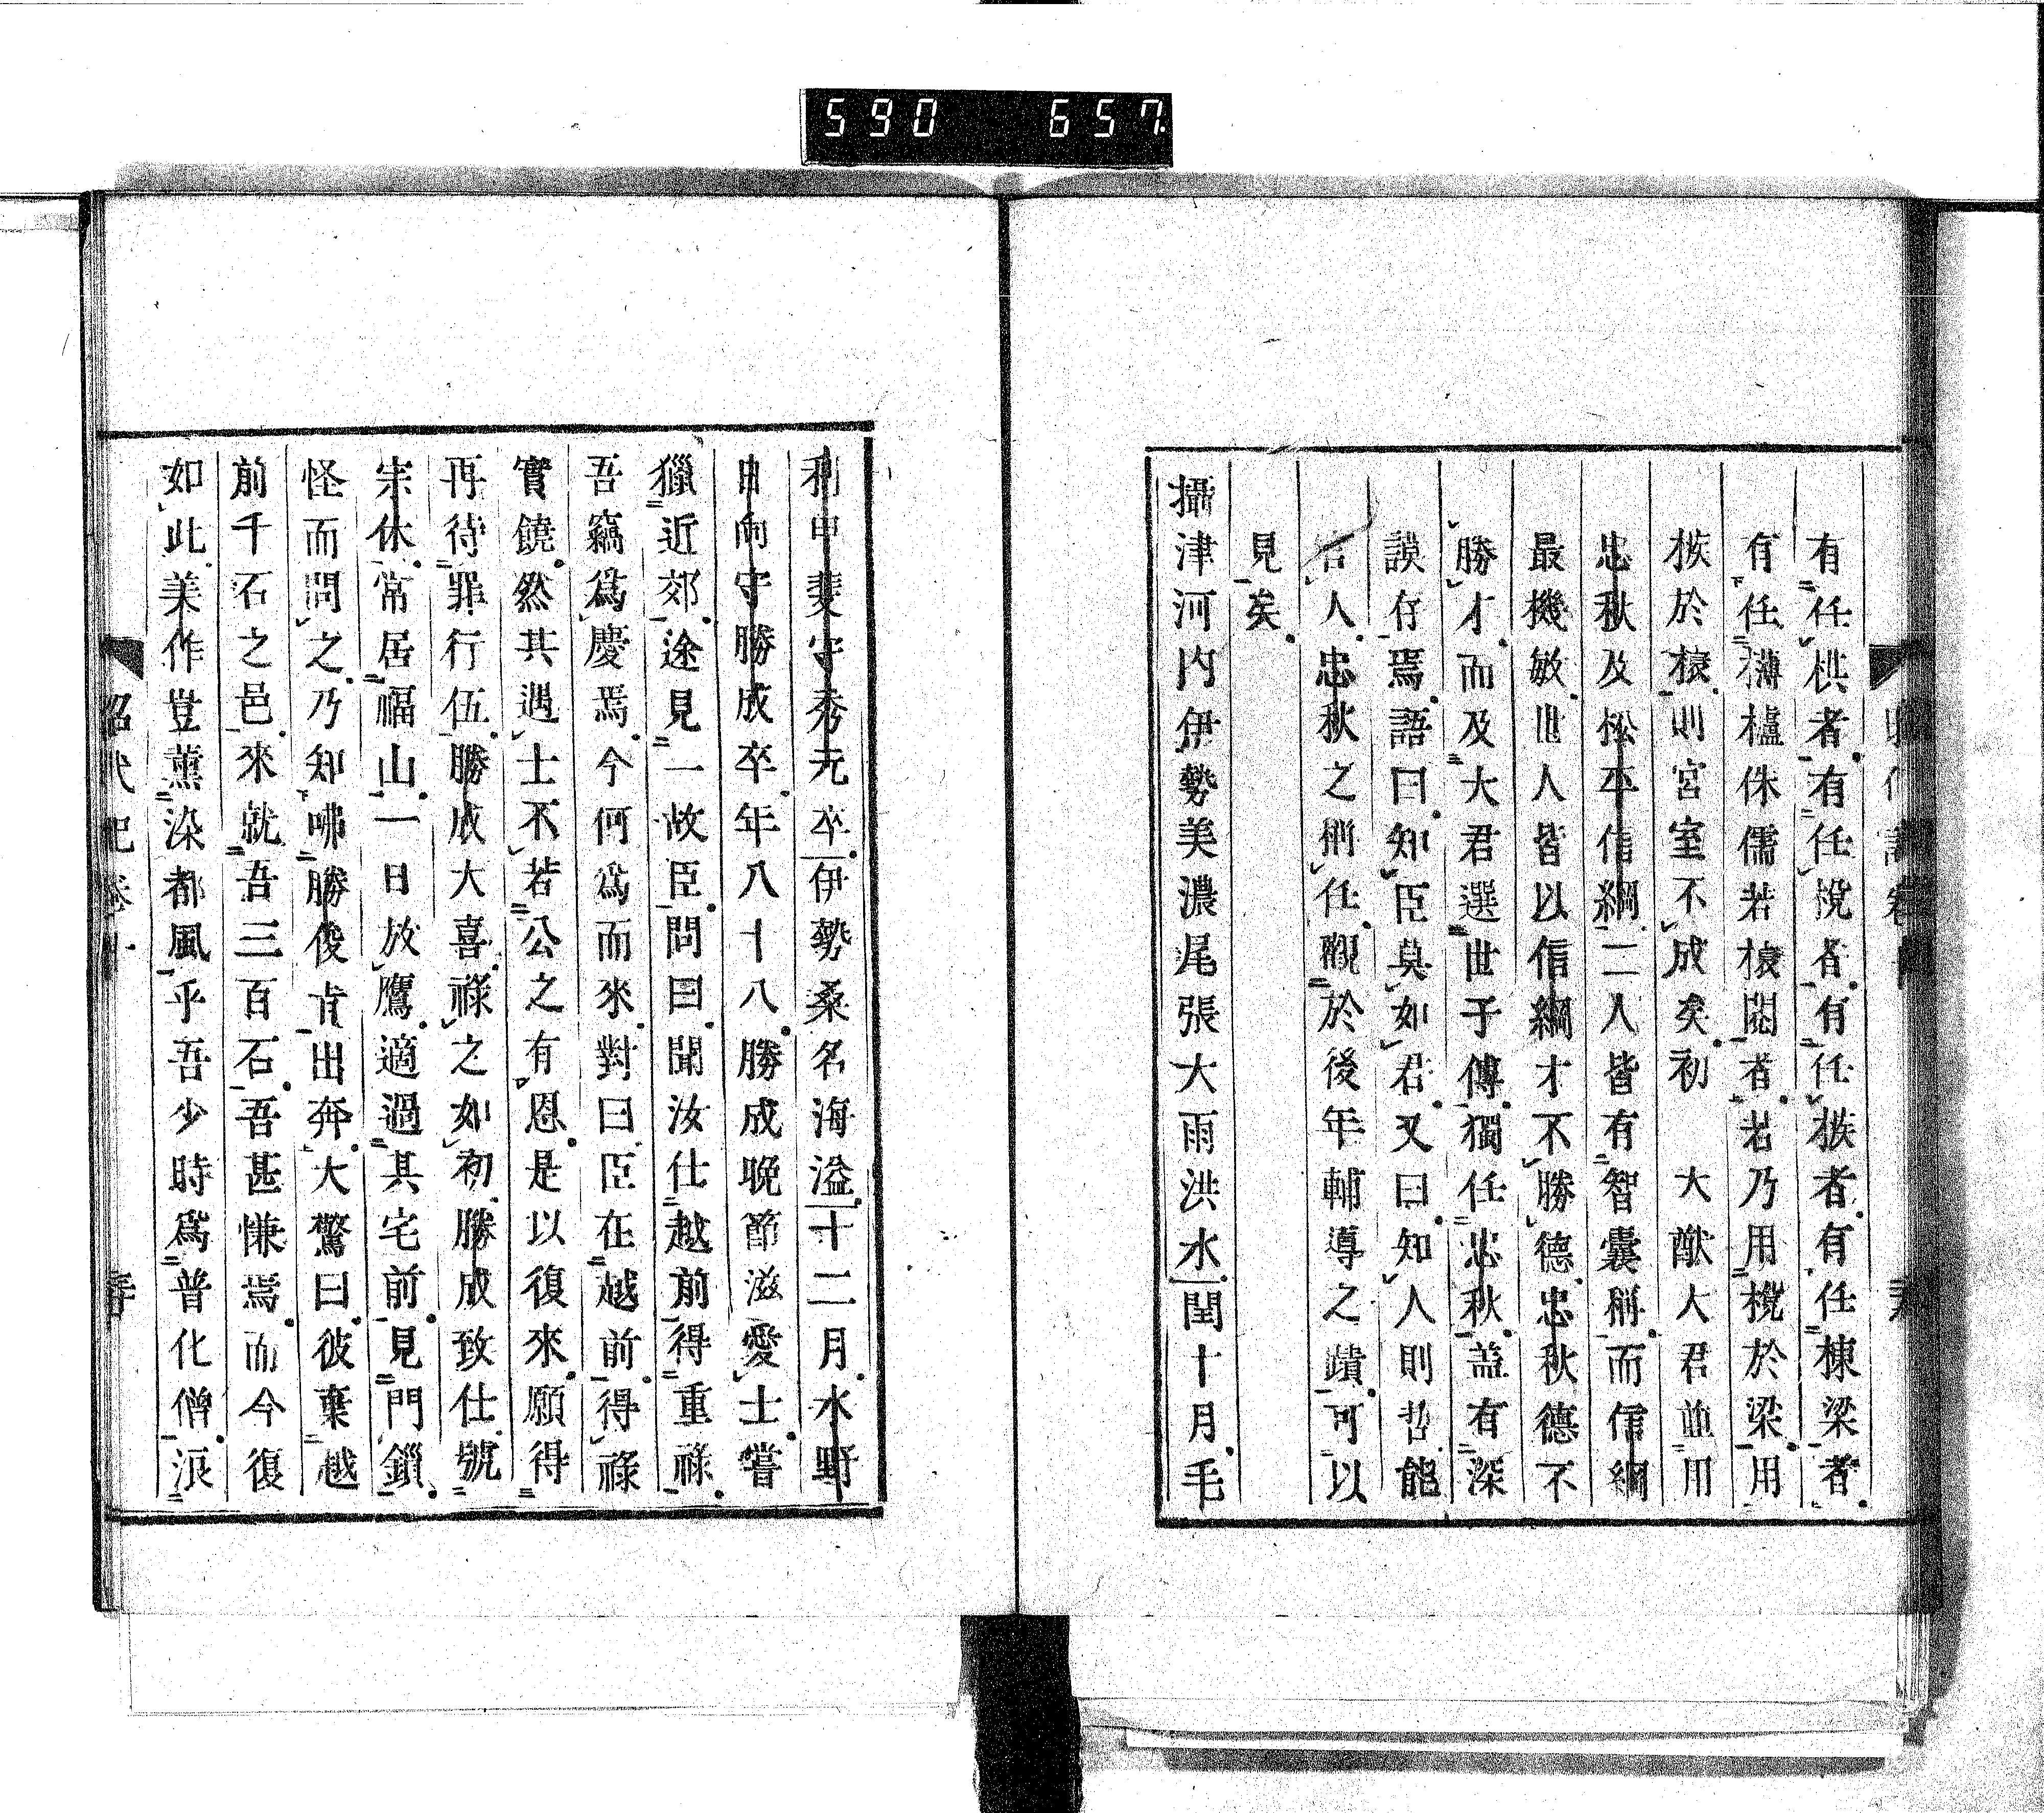 590 657
有任栱者有任棁者有任㭺者有任棟梁者
有任欂櫨侏儒若榱闊者若乃用棁於梁用
㭺於榱則宮室不成矣初　大猷大君並用
忠秋及松平信綱二人皆有智囊稱而信綱
最機敏世人皆以信綱才不勝德忠秋德不
勝才而及大君選世子傅獨任忠秋蓋有深
謨存焉語曰知臣莫如君又曰知人則哲能
官人忠秋之稱任觀於後年輔導之蹟可以
見矣
攝津河內伊勢美濃尾張大雨洪水閏十月毛
利甲斐守秀元卒伊勢桑名海溢十二月水野
日向守勝成卒年八十八勝成晚節滋愛士嘗
獵近郊途見一故臣問曰聞汝仕越前得重祿
吾竊爲慶焉今何爲而來對曰臣在越前得祿
實饒然其遇士不若公之有恩是以復來願得
再待罪行伍勝成大喜祿之如初勝成致仕號
宗休常居福山一日放鷹適過其宅前見門鎖
怪而問之乃知啡勝俊旨出奔大驚曰彼棄越
前千石之邑來就吾三百石吾甚慊焉而今復
如此美作豈薰染都風乎吾少時爲普化僧泿
昭代記卷十